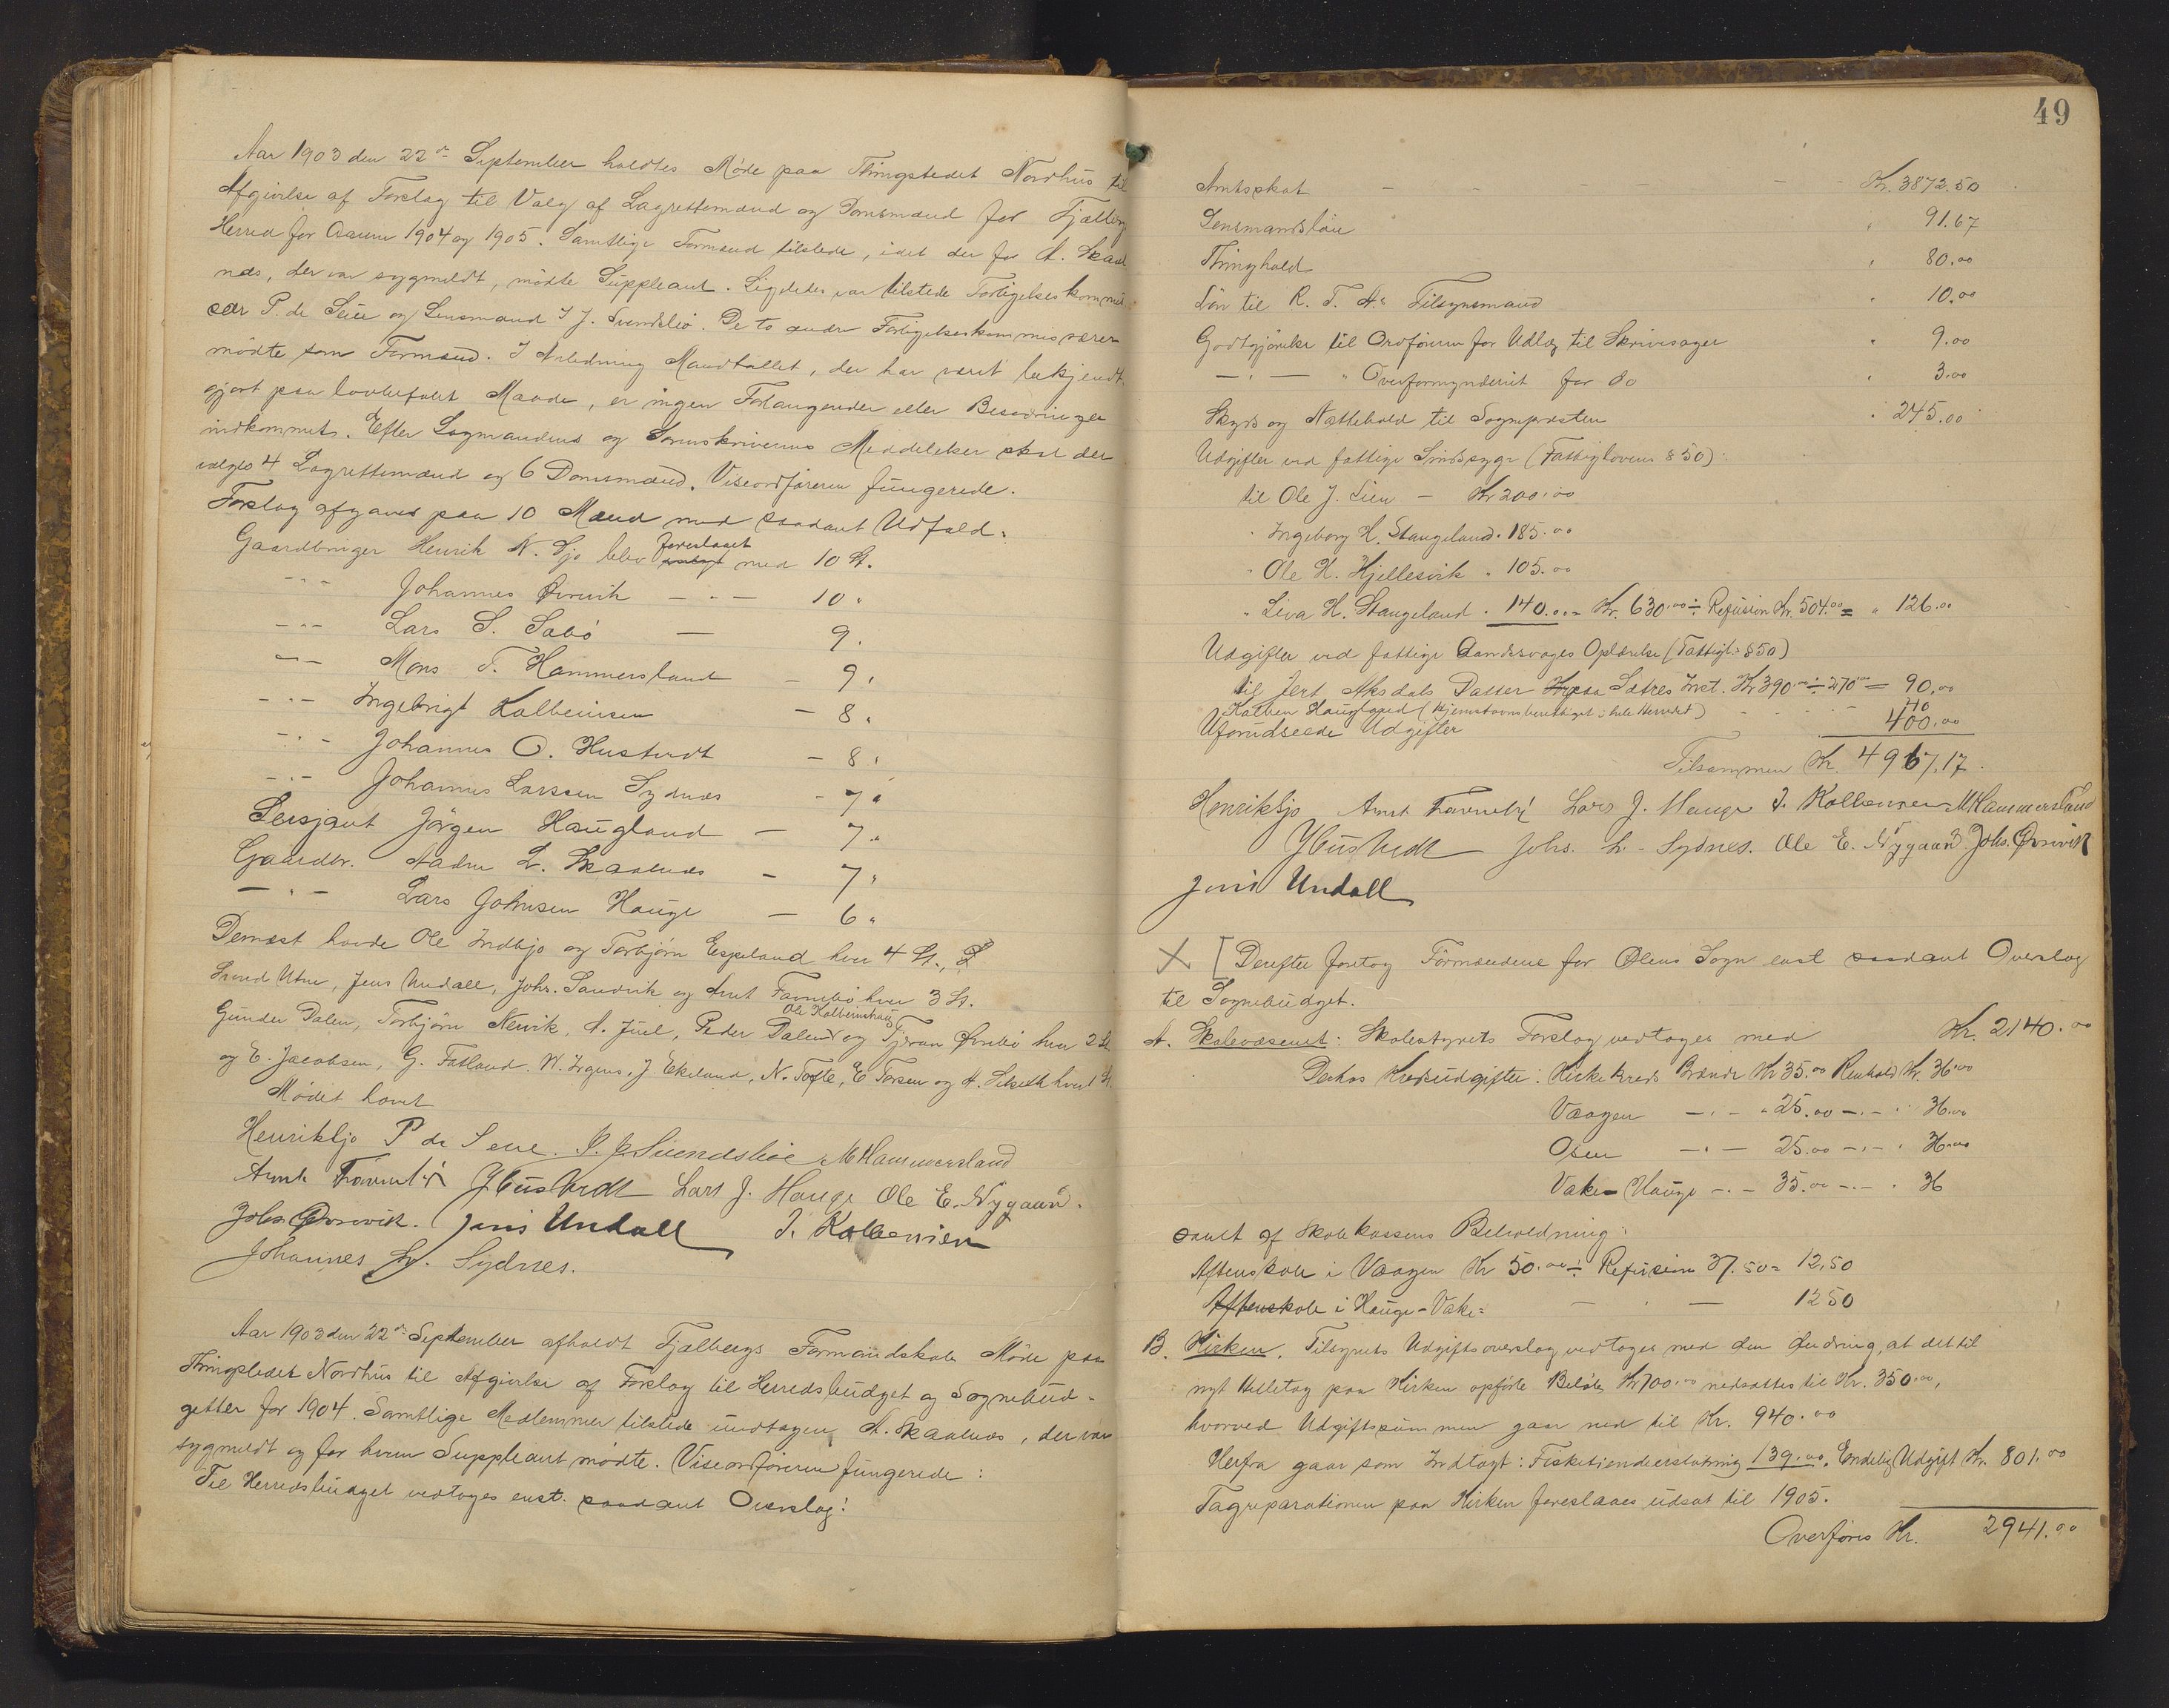 Aar 1903 den 22de September holdtes Møde paa Thingstedet Nordhus til
Afgivelse af Forslag til Valg af Lagrettemænd og Domsmænd for Fjælberg
Herred for Aarene 1904 og 1905. Samtlige Formænd tilstede, idet der for A. Skaal
næs, der var sygmeldt, mødte Suppleant. Ligeledes var tilstede Forligelseskommis
sær P. de Seue og Lensmand J. J. Svendsbø. De to andre Forligelseskommissærer
mødte som Formænd. I Anledning Mandtallet, der har været bekjendt
gjort paa lovbefalet Maade, er ingen Forlangender eller Besværinger
indkommet. Efter Lagmandens og Sorenskriverens Meddelelser skal der
vælges 4 Lagrettemænd og 6 Domsmænd. Viseordføreren fungerede.
Forslag afgaves paa 10 Mænd med saadant Udfald:
Gaardbruger Henrik N. Ljo blev valgt foreslaaet med 10 St.
-"- Johannes Ørsvik -"- 10 "
-"- Lars S. Sabø - 9 "
-"- Mons T. Hammersland - 9 "
-"- Ingebrigt Kolbeinsen - 8 "
-"- Johannes O. Hustvedt - 8 "
-"- Johannes Larssen Sydnes - 7 "
Sersjant Jørgen Haugland - 7 "
Gaardbr. Aadne L. Skaalnæs - 7 "
-"- Lars Johnsen Hauge - 6 "
Dernæst havde Ole Indbjo og Torbjørn Espeland hver 4 St., L
Svend Utne, Jens Undall, Johs. Sandvik og Arnt Favnebø hver 3 St.
Gunder Dalen, Torbjørn Nervik, A. Juel, Peder Dalen Ole Kolbeinshaug og Tjeran Ørebø hver 2 St.
og E. Jacobsen, G. Fatland, W. Irgens, J Ekeland, N. Tofte, E Torsen og A. hver 1 St.
Mødet hævet
Henrik Ljo P de Seue. J. J. Svendsbøe M Hammersland
Arnt Favnebø J Hustvedt Lars J. Hauge Ole E. Nygaard.
Johs Ørsvik. Jens Undall I. Kolbeinsen
Johannes L. Sydnes.
Aar 1903 den 22de September afholdt Fjælbergs Formandskab Møde paa
Thingstedet Nordhus til Afgivelse af Forslag til Herredsbudget og Sognebud-
getter for 1904. Samtlige Medlemmer tilstede undtagen A. Skaalnæs, der var
sygmeldt og for hvem Suppleant mødte. Viseordføreren fungerede:
Til Herredsbudget vedtoges enst. saadant Overslag:
49
Amtsskat - - - - - - Kr. 3872.50
Lensmandsløn " 91.67
Thinghold " 80.00
Løn til R. T. A's Tilsynsmand " 10.00
Godtgjørelse til Ordføreren for Udlæg til Skrivesager " 9.00
-"- " Overformynderiet for do " 3.00
Skyds og Nattehold til Sognepræsten " 245.00
Udgifter ved fattige Sindssyge (Fattiglovens § 50):
til Ole J. Lien - Kr 200.00
" Ingeborg H. Stangeland " 185.00
" Ole H. Kjellesvik " 105.00
" Siva H. Stangeland " 140.00 = Kr. 630.00 ÷ Refusion Kr. 504.00 = " 126.00
Udgifter ved fattige Aandssvages Oplærelse (Fattigl. § 50)
til Jert Aksdals Datter paa Sætres Inst. Kr 390.00 ÷ 270.00 = 90.00
Haugland (Hjemstavnsberettiget i hele Herredet) 40
Uforudseede Udgifter 400.00
Tilsammen Kr. 4967.17
Henrik Ljo Arnt Favnebø Lars J. Hauge I. Kolbeinsen M Hammersland
J Hustvedt Johs. L. Sydnes. Ole E. Nygaard Johs. Ørsvik
Jens Undall
X [ Derefter foretog Formændene for Ølens Sogn enst saadant Overslag
til Sognebudget.
A. Skolevæsenet: Skolestyrets Forslag vedtoges med Kr. 2140.00
Derhos Kredsudgifter: Kirke Kreds Brænde Kr 35.00 Renhold Kr. 36.00
Vaagen -"- " 25.00 -"- " 36.00
Osen -"- 25.00 -"- " 36.00
Vake-Hauge -"- 35.00 -"- " 36
samt af Skolekassens Beholdning:
Aftenskole i Vaagen Kr 50.00 ÷ Refusion 37.50 = 12,50
Aftenskole i Hauge-Vake = - " - 12 50
B. Kirken. Tilsynets Udgiftsoverslag vedtoges med den Ændring, at det til
nyt Helletag paa Kirken opførte Beløb Kr 700.00 nedsattes til Kr. 350.00,
hvorved Udgiftssummen gaar ned til Kr. 940.00
Herfra gaar som Indtægt: Fisketiendeerstatning 139.00. Endelig Udgift Kr. 801.00
Tagreparationen paa Kirken foreslaaes udsat til 1905.
Overføres Kr. 2941.00